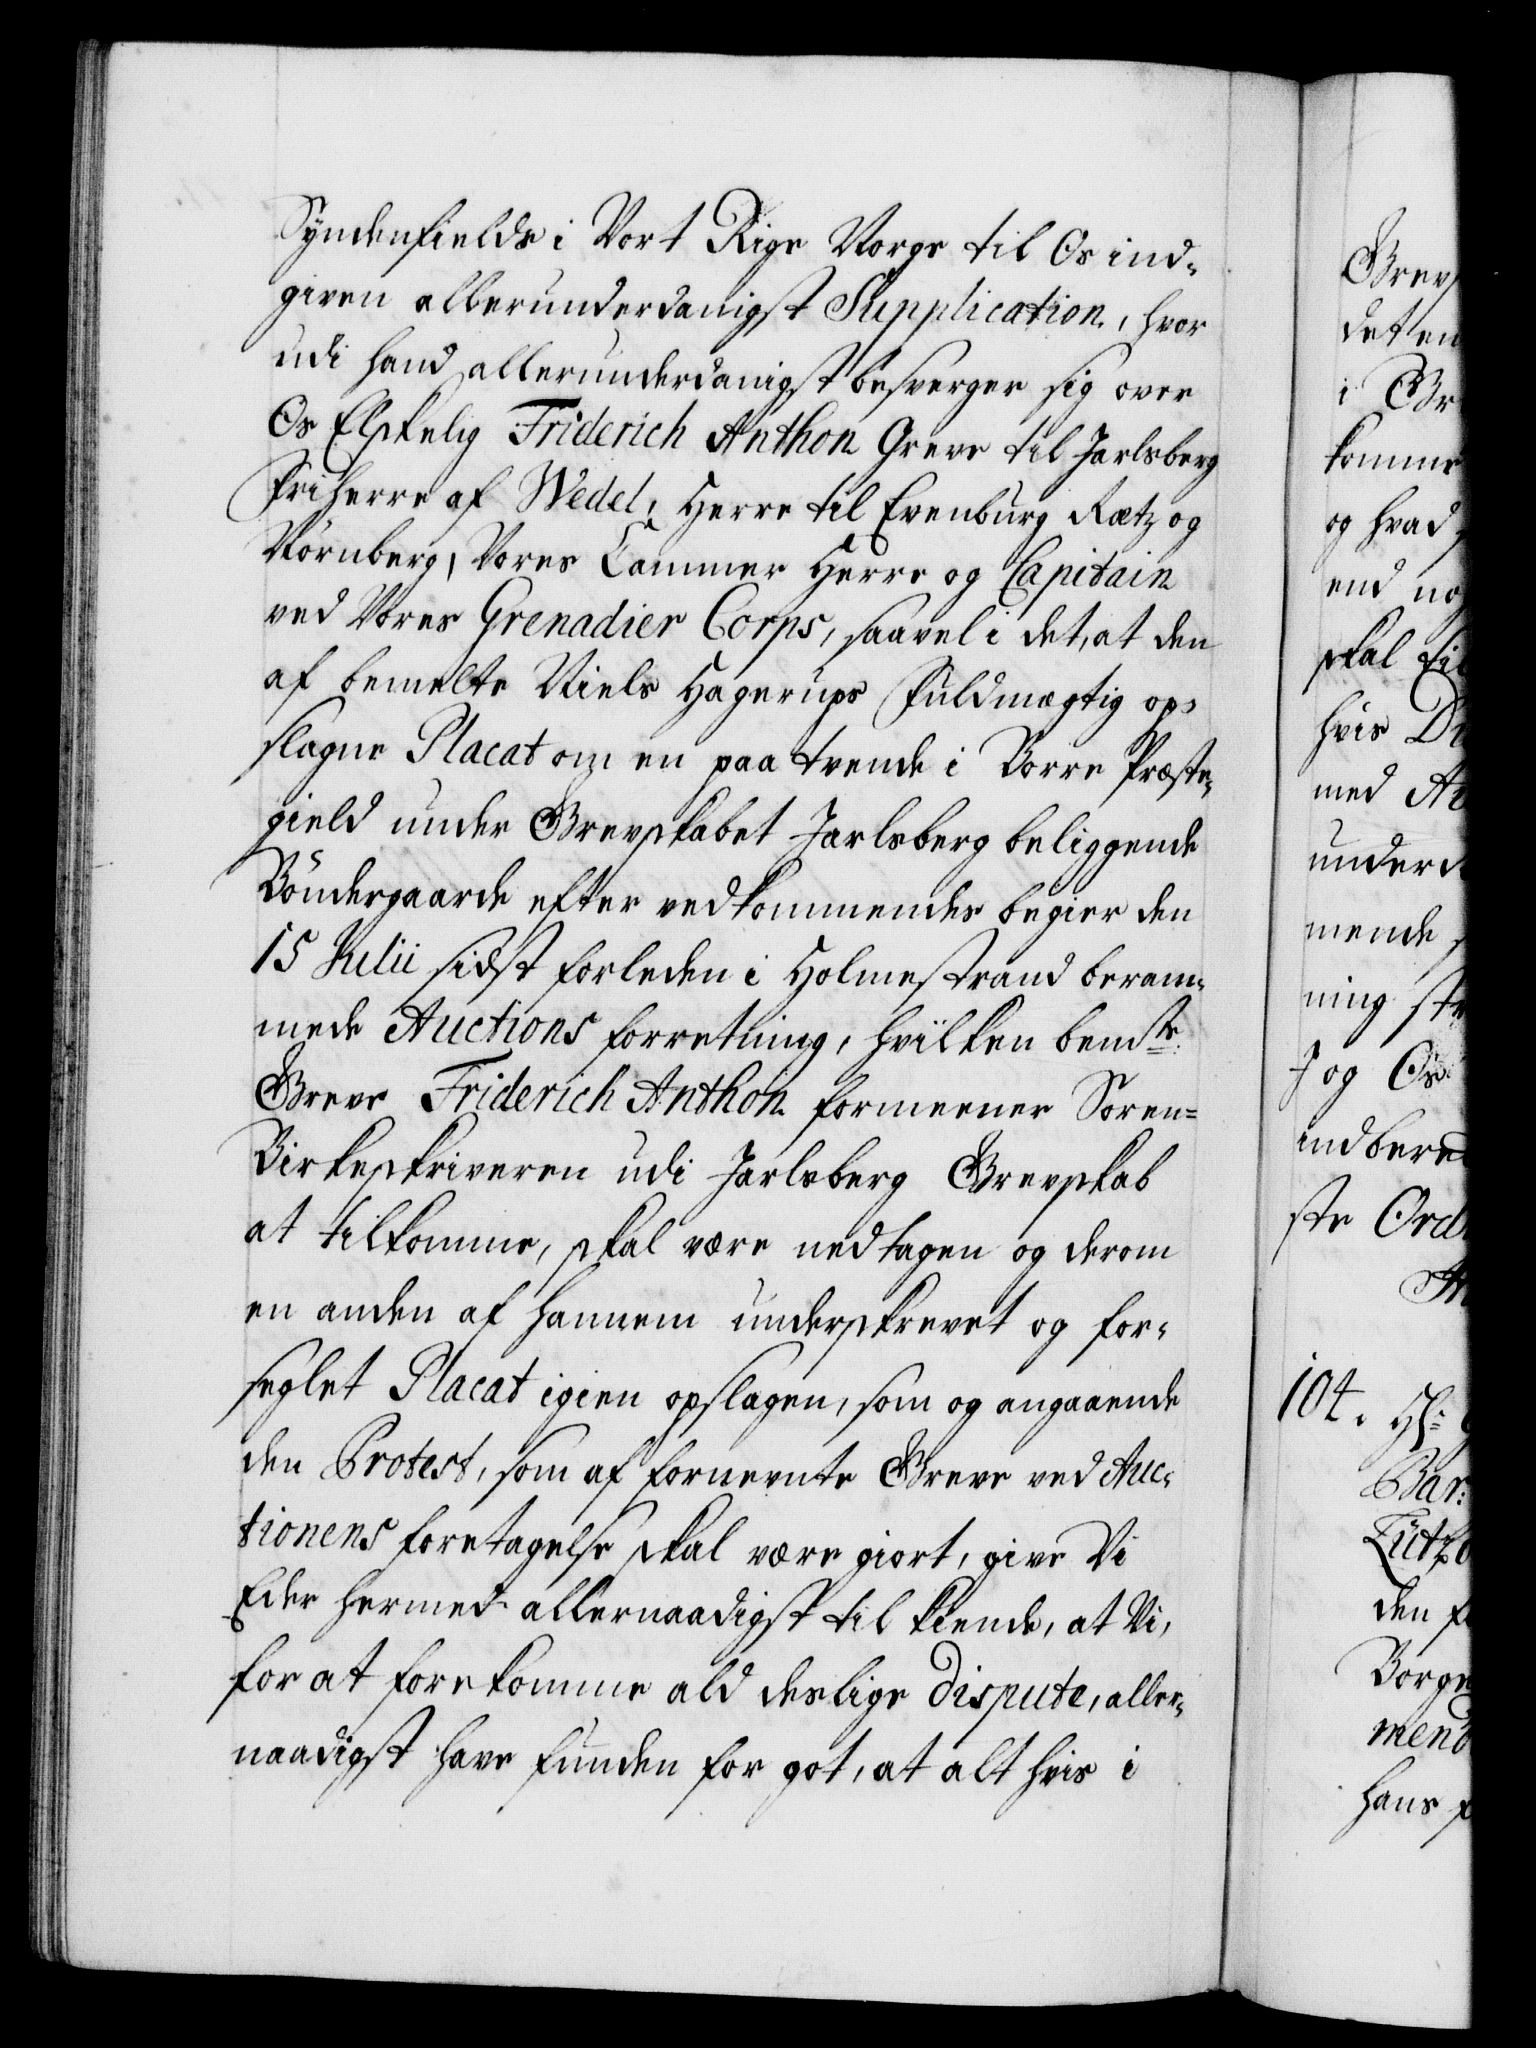 Syndenfields i Vort Rige Norge til Os ind-
given allerunderdanigst Supplication, hvor
udi hand allerunderdanigst besverger sig over
Os Elskelig Friderich Anthon Greve til Jarlsberg
Friherre af Wedel, Herre til Evenburg Rætz og
Nörnberg, Vores Cammer Herre og Capitain
ved Vores Grenadier Corps, saavel i det, at den
af bemelte Niels Hagerups Fuldmægtig op-
slagne Placat om en paa tvende i Borre Præste-
gield under Grevskabet Jarlsberg beliggende
Böndergaarde efter vedkommendes begier den
15 Julii sidst forleden i Holmestrand beram-
mede Auctions forretning, hvilken bemte
Greve Friderich Anthon formeener Soren-
Birkeskriveren udi Jarlsberg Grevskab
at tilkomme, skal være nedtagen og derom
en anden af hannem underskrevet og for-
seglet Placat igien opslagen, som og angaaende
den Protest, som af fornevnte Greve ved Auc-
tionens foretagelse skal være giort, give Vi
Eder hermed allernaadigst til kiende, at Vi,
for at forekomme ald deslige Dispute, aller-
naadigst have funden for got, at alt hvis i
Grevs
det en
i Gr
komme
og hvad
end no
skal
hvis
med
under
mende
ning
J og Os
indbere
ste Ord
104.
Bar:
Lützo
den
Borge
mend
hans